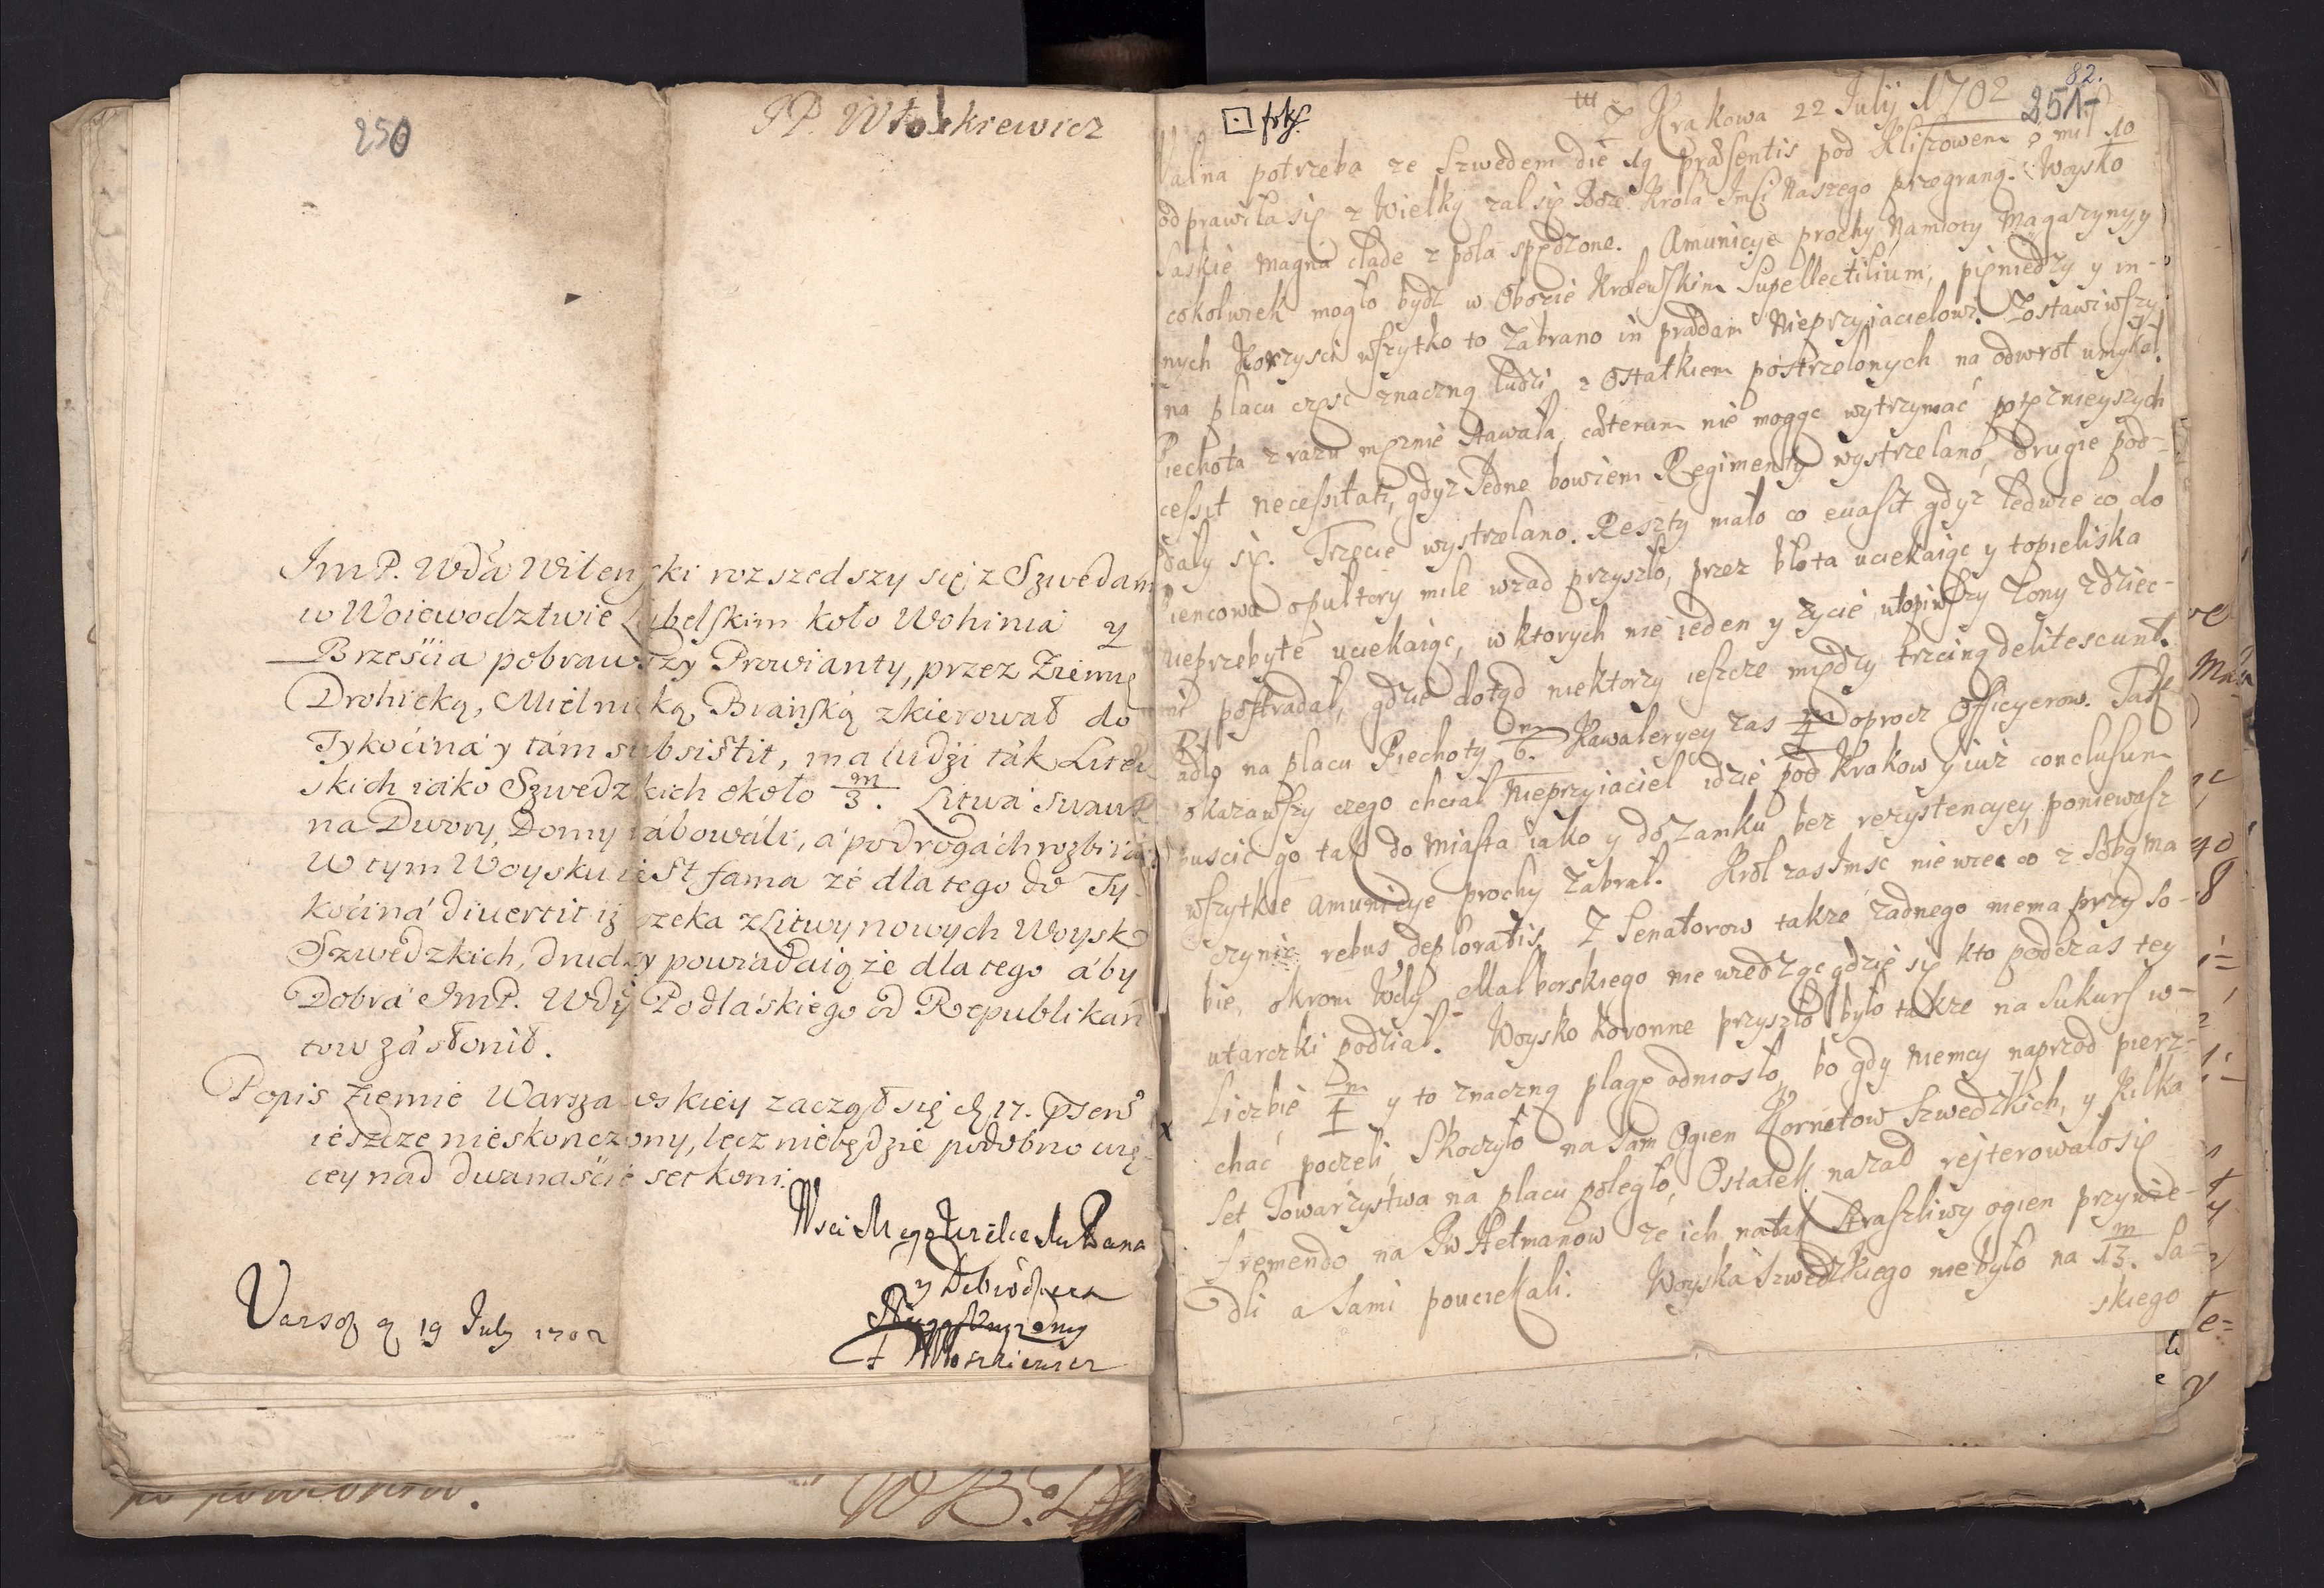 250
JP. Włoskiewicz
JmP. Wda Witenski rozszedszy się z Szwedam
w Woiewodztwie Lubelskim koło Wohinia y
Brześćia pobrawszy Prowianty, przez Ziemię
Drohicką, Mielnicką, Brańską zkierował do
Tykoćina y tám subsistit, ma ludźi ták Litew
skich iáko Szwedzkich około m/3. Litwá swawol
na Dwory, Domy rábowáli, á po drogách rozbiiáią
W tym Woysku iest fama że dla tego do Ty-
koćiná divertit iż czeka z Litwy nowych Woysk
Szwedzkich, drudzy powiadaią że dla tego áby
Dobrá JmP. Wdy Podláskiego od Republikan
tow zásłonił.
Popis Ziemie Warszawskiey zaczął się d. 17. psens
ieszcze nieskonczony, lecz niebędzie podobno wię-
cey nad dwanaśćie set koni.
Wsci Mego Wielce Mu Pana
y Dobrodzieia
Naynizszy
Włoskiewicz
Varsov d 19 July 1702
82.
251
Z Krakowa 22 Julij 1702
Walna potrzeba ze Szwedem die 19 præsentis pod Kliszowem o mil 10
odprawiła się z Wielką zal się Boze Krola Jmsi Naszego przegraną. Woysko
Saskie magna clade z pola spędzone. Amunicye prochy Namioty Magazyny y
cokolwiek mogło bydz w Obozie Krolewskim Supellectilium, pieniędzy y in-
nych Korzysci wszytko to Zabrano in prædam Nieprzyiacielowi. Zostawiwszy
na placu częsc znaczną ludzi z Ostatkiem postrzelonych na odwrot umykał.
Piechota zrazu mężnie stawała, cæterum nie mogąc wytrzymać potężnieyszych
cessit necessitati, gdyz Jedne bowiem Regimenty wystrzelano, drugie pod-
dały się. Trzecie wystrzelano. Reszty mało co evasit gdyz ledwie co do
Pienczowa opultory mile wzad przyszło, przez błota uciekaiąc y topieliska
nieprzebyte uciekaiąc, w ktorych nie ieden y zycie utopiwszy Zony z dziec-
mi postradał, gdzie dotąd niektorzy ieszcze między trzciną delitescunt.
Padło na placu Piechoty m/6. Kawaleryey zas m/4 oprocz Officyerow. Tak
okazawszy czego chciał Nieprzyiaciel idzie pod Krakow y iuz conclusum
puscic go tak do Miasta iako y do Zamku bez rezystencyey, poniewasz
wszytkie Amunicye prochy Zabrał. Krol zas Jmsc nie wie co z sobą ma
czynic rebus deploratis. Z Senatorow takze zadnego niema przy so-
bie, okrom Wdy Malborskiego nie wiedząc gdzie się kto podczas tey
utarczki podział. Woysko Koronne przyszło było takze na Sukurs w
Liczbie m/4 y to znaczną plagę odniosło, bo gdy Niemcy naprzod pierz-
chać poczęli, Skoczyło na sam Ogien Kornetow Szwedzkich, y Kilka
Set Towarzystwa na placu poległo, Ostatek nazad rejterowało się
fremendo na JW Hetmanow ze ich na tak straszliwy ogien przywie-
dli a sami pouciekali. Woyska Szwedzkiego nie było na m/13. Sa-
skiego